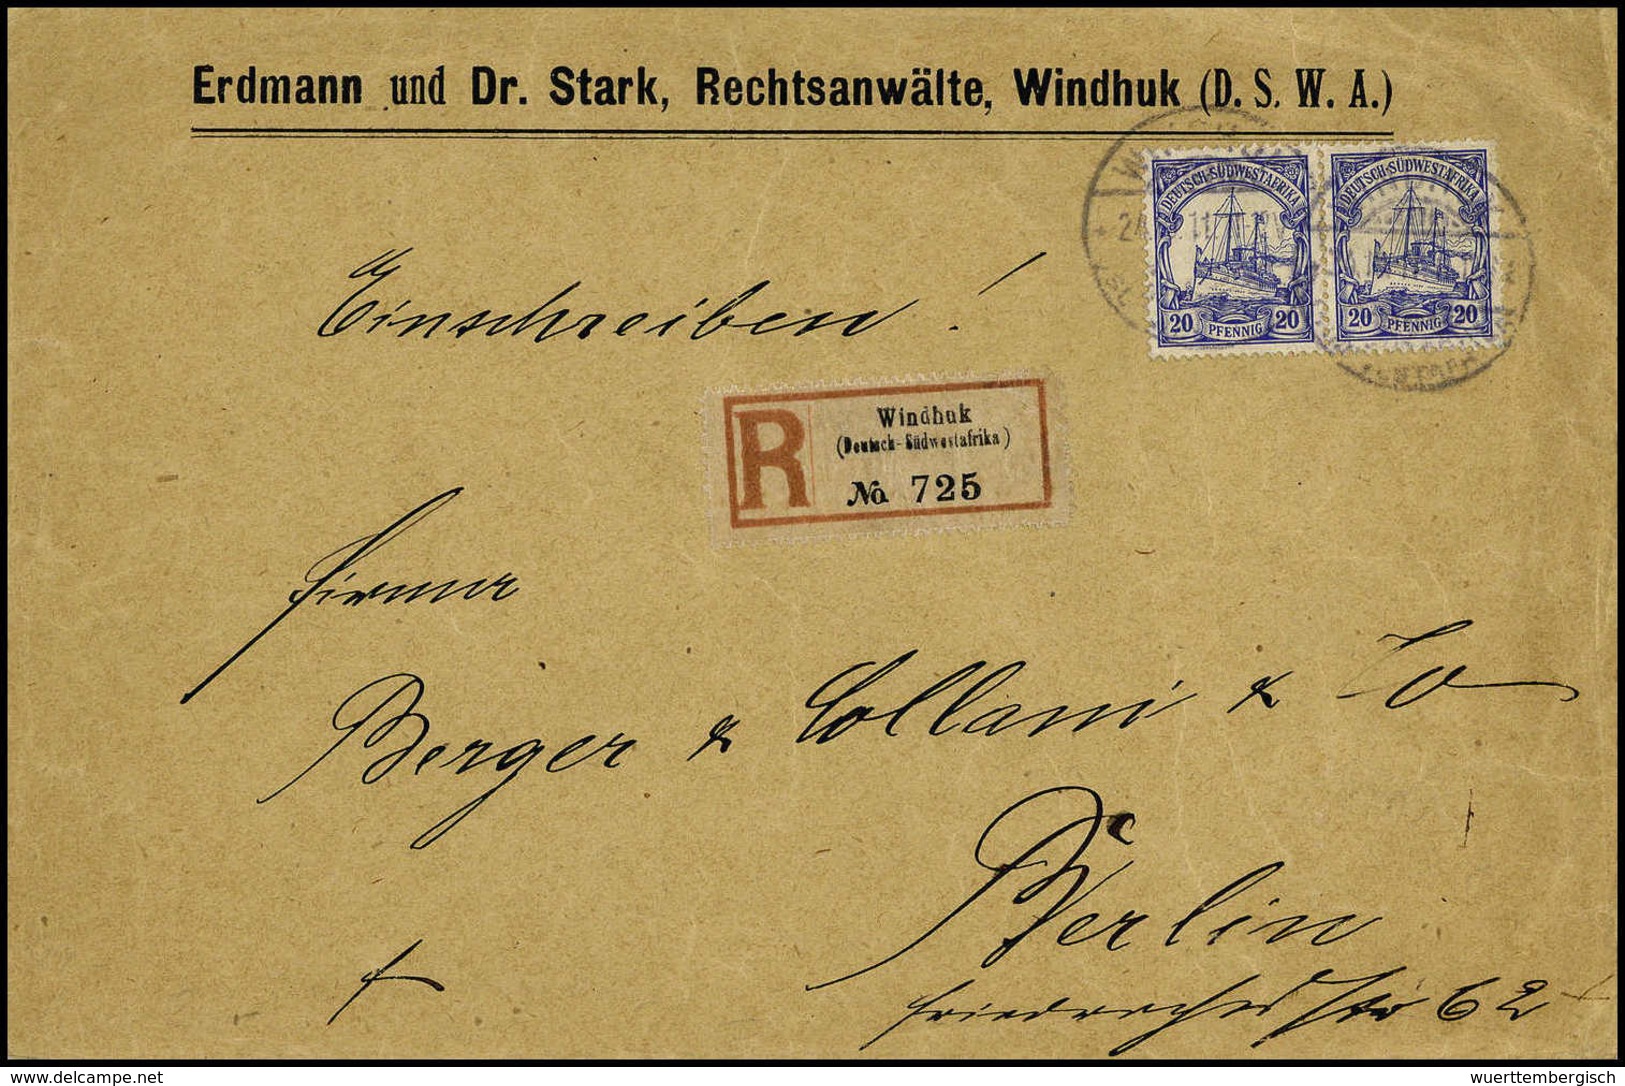 Erdmann und Dr. Stark, Rechtsanwälte, Windhuk (D. S. W. A.)
DEUTSCH-SÜDWESTAFRIKA DEUTSCH-SÜDWESTAFRIKA
20 PFENNIG 20 20 PFENNIG 20
Einschreiben!
R Windhuk
(Deutsch-Südwestafrika)
No 725
Firma
Berger & Collani & Co
Berlin
62
delcampe.net
wuerttembergisch